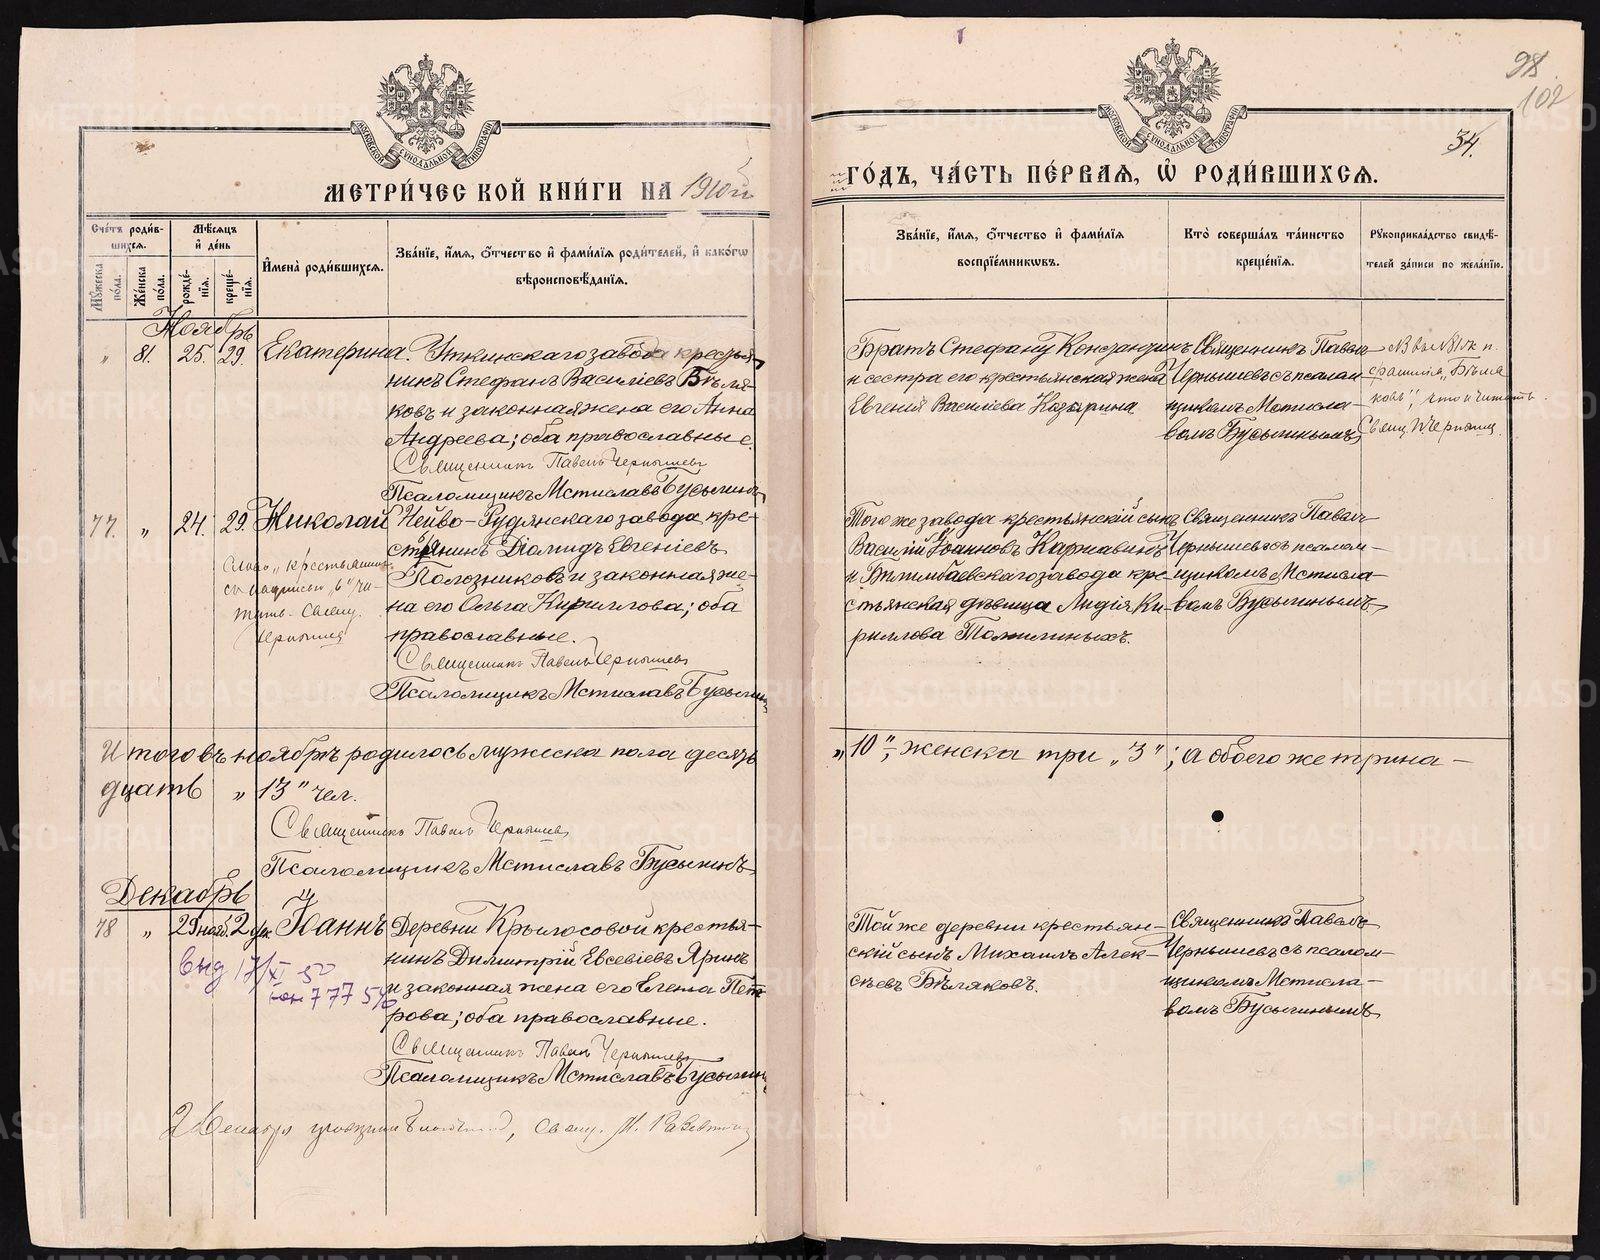 98.
102
34.
МОСКОВСКОЙ СѴНОДАЛЬНОЙ ТИПОГРАФІИ
МОСКОВСКОЙ СѴНОДАЛЬНОЙ ТИПОГРАФІИ
МЕТРИ́ЧЕСКОЙ КНИ́ГИ НА 1910й
ГО́ДЪ, ЧА́СТЬ ПЕ́РВАЯ, Ѡ҆ РОДИ́ВШИХСЯ.
Сче́тъ роди́в-
шихся.
Мѣ́сяцъ
и҆ де́нь
Мꙋ́жеска
по́ла.
Же́нска
по́ла.
рожде́-
нїя.
креще́-
нїя.
И҆мена̀ роди́вшихся.
Зва́нїе, и҆́мя, ѻ҆́тчество и҆ фами́лїя роди́телей, и҆ како́гѡ
вѣроисповѣ́данїя.
Зва́нїе, и҆́мя, ѻ҆́тчество и҆ фами́лїя
воспрїе́мникѡвъ.
Кто̀ соверша́лъ та́инство
креще́нїя.
Рꙋкоприкла́дство свидѣ́-
телей за́писи по жела́нїю.
Ноябрь
„ 81. 25. 29. Екатерина. Уткинскаго завода крестья-
нинъ Стефанъ Василіевъ Бѣля-
ковъ и законная жена его Анна
Андреева; оба православные.
Священникъ Павелъ Чернышевъ
Псаломщикъ Мстиславъ Бусыгинъ
Братъ Стефану Константинъ
и сестра его крестьянская жена
Евгенія Василіева Казарина
Священникъ Павелъ
Чернышевъ съ псалом-
щикомъ Мстисла-
вомъ Бусыгинымъ
фамилія „Бѣля
ковъ", что и читать.
Свящ. П. Чернышев
77. „ 24. 29. Николай Нейво-Рудянскаго завода кре-
стьянинъ Діомидъ Евгеніевъ
Полозниковъ и законная же-
на его Ольга Кириллова; оба
православные.
Священникъ Павелъ Чернышевъ
Псаломщикъ Мстиславъ Бусыгинъ
Слово „крестьянинъ
съ надписью „ь" чи-
тать. Свящ.
Чернышев
Того же завода крестьянскій сынъ
Василій Іоанновъ Каржавинъ
и Билимбаевскаго завода кре-
стьянская дѣвица Лидія Ки-
риллова Томилиныхъ.
Священникъ Павелъ
Чернышевъ съ псалом-
щикомъ Мстисла-
вомъ Бусыгинымъ
Итого въ ноябрѣ родилось мужеска пола десять „10", женска три „3"; а обоего же трина-
дцать „13" чел.
Священникъ Павелъ Чернышевъ
Псаломщикъ Мстиславъ Бусыгинъ
Декабрь
78 „ 29 нояб. 2 дек Іоаннъ Деревни Крылосовой крестья-
нинъ Димитрій Евсевіевъ Яринъ
и законная жена его Елена Пет-
рова; оба православные.
Священникъ Павелъ Чернышевъ
Псаломщикъ Мстиславъ Бусыгинъ
выд 17/XI 50
777 546
Той же деревни крестьян-
скій сынъ Михаилъ Алек-
сѣевъ Бѣляковъ.
Священникъ Павелъ
Чернышевъ съ псалом-
щикомъ Мстисла-
вомъ Бусыгинымъ
2 Декабря
METRIKI.GASO-URAL.RU